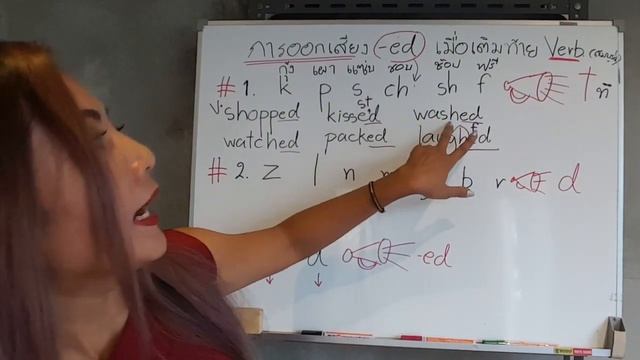 การออกเสียง -ed เมื่อเติมท้าย Verb
กุ้ง เผา แซ่บ ชอบ ช้อป ฟรี
#1. k p s ch sh f t ที
v. shopped kissed st washed
watched packed laughed f
#2. z l n b r d
d -ed